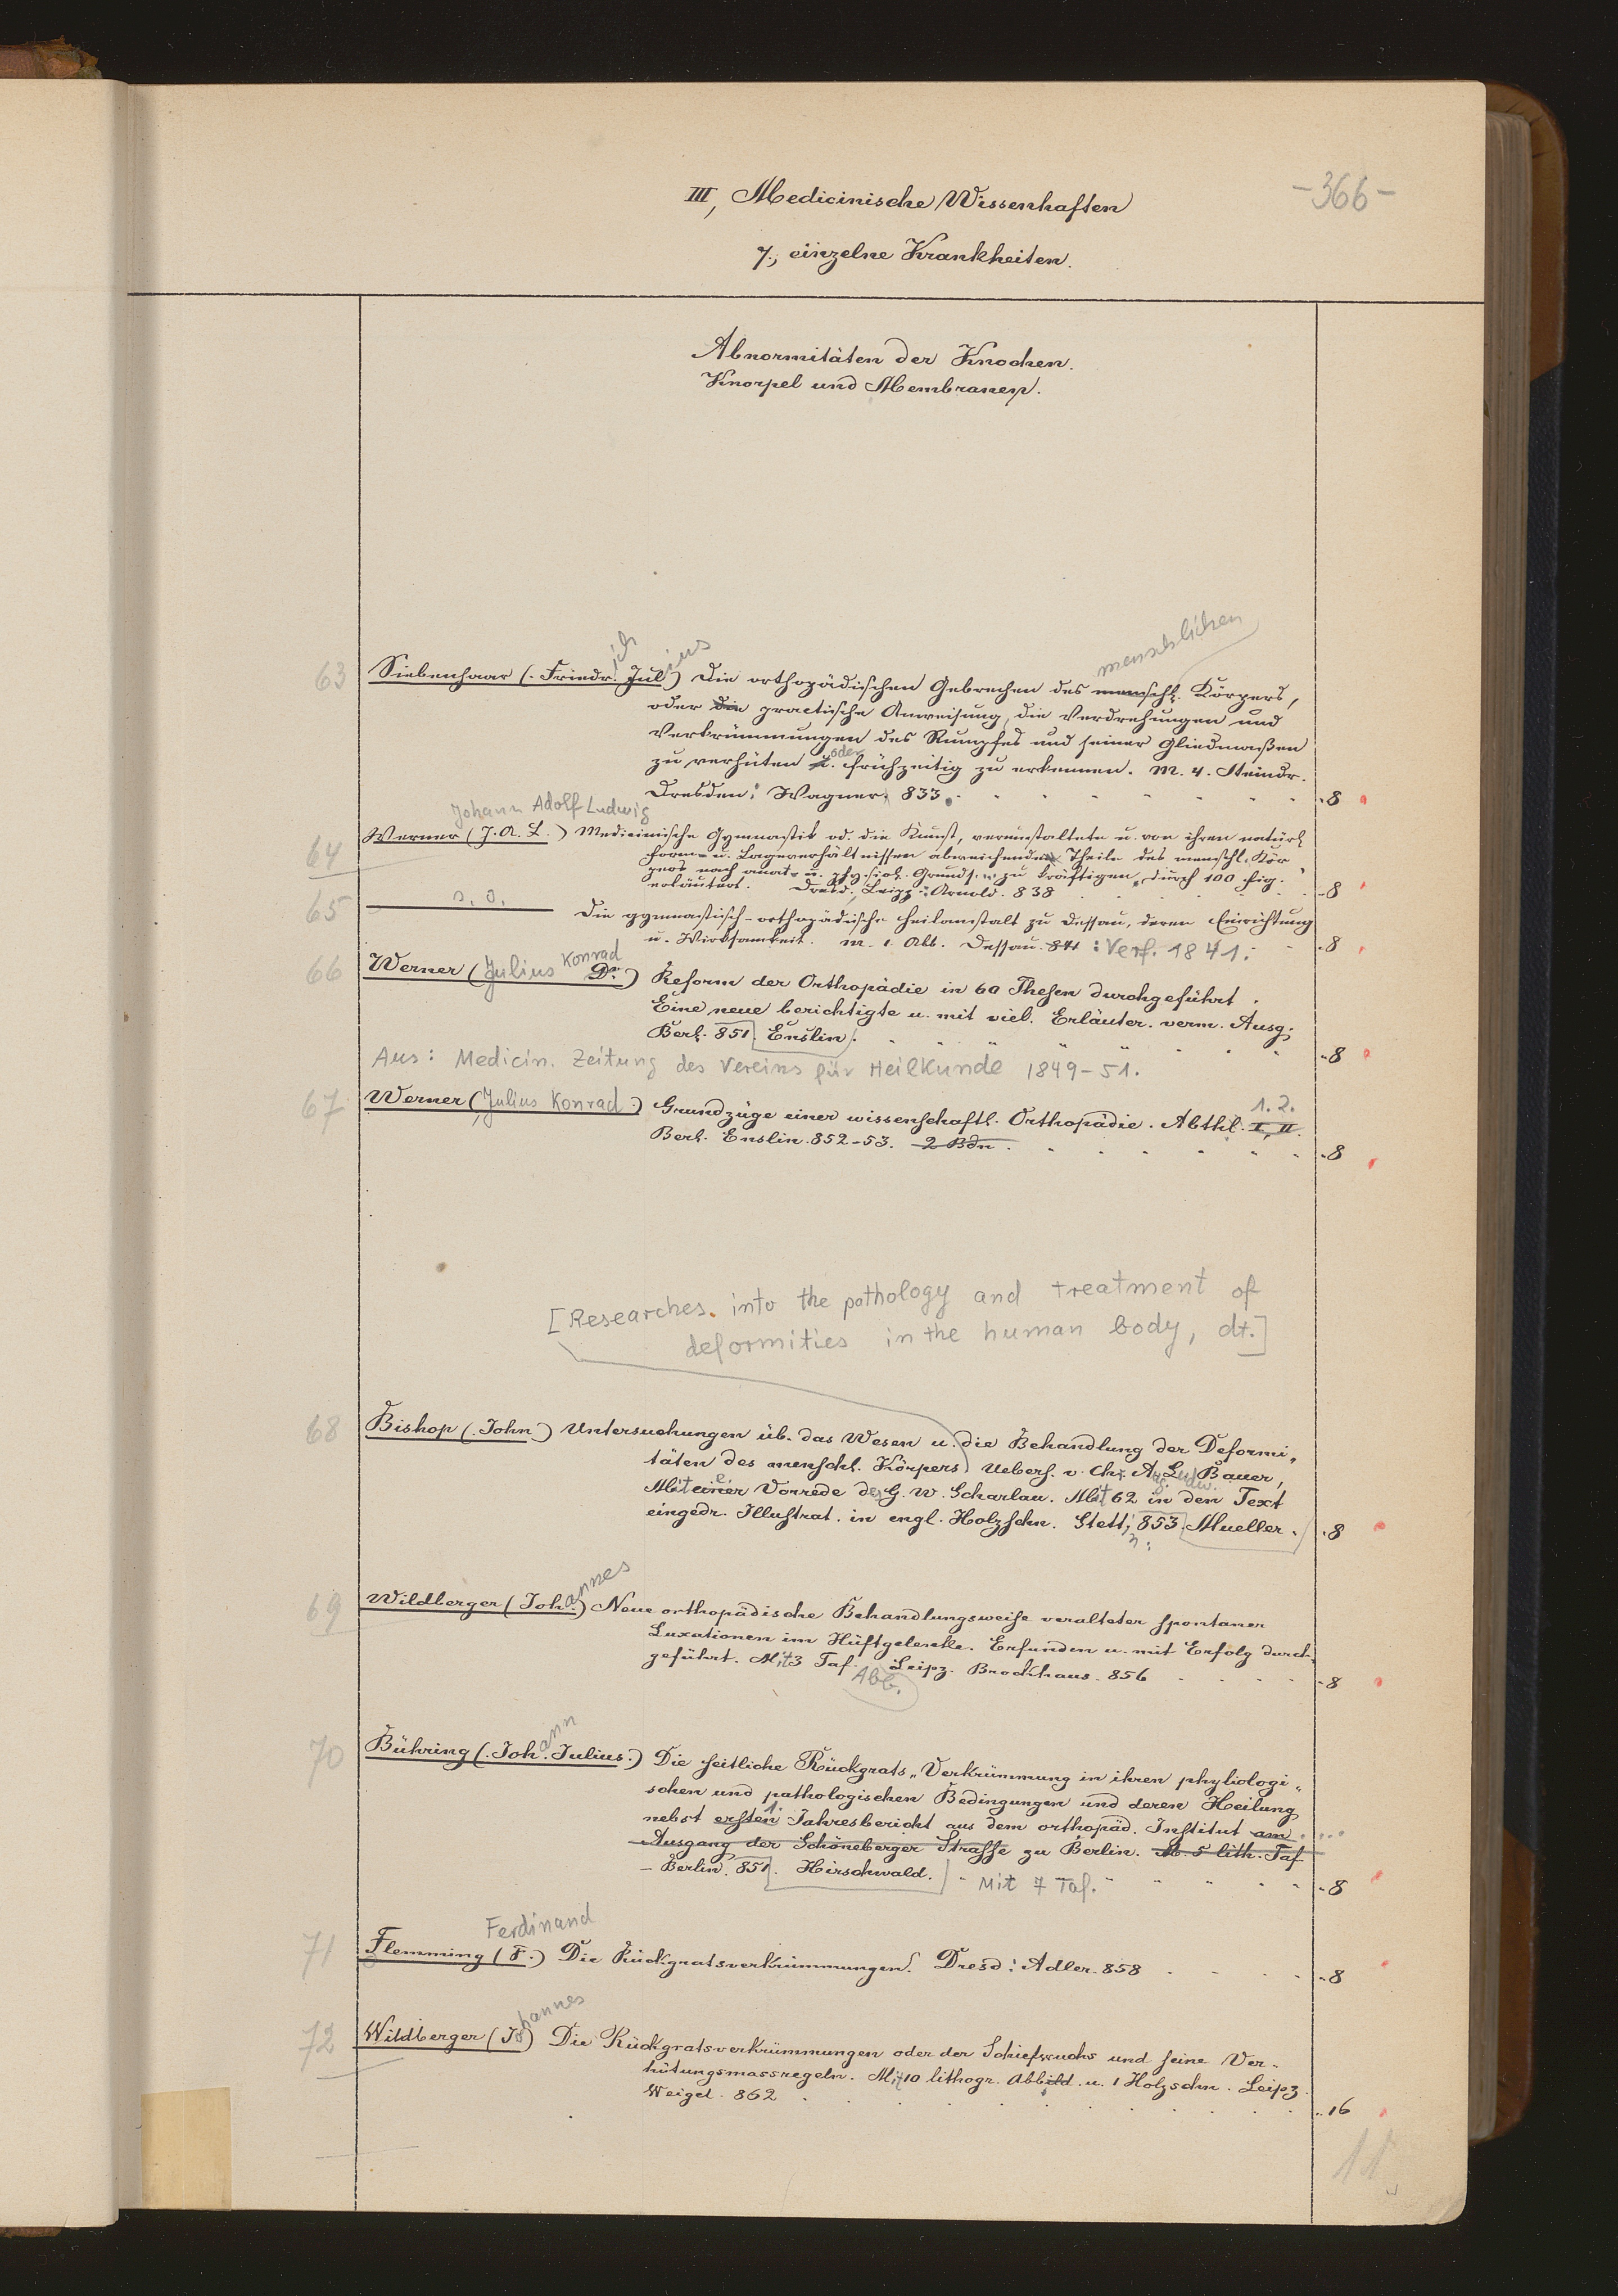 -366-
III, Medicinische Wissenhaften
7., einzelne Krankheiten.
Abnormitäten der Knochen.
Knorpel und Membranen.
menschlichen
63 Siebenhaar (Friedr.ich Jul.ius) Die orthopädischen Gebrechen des menschl. Körpers,
oder die practische Anweisung, die Verdrehungen und
Verkrümmungen des Rumpfes und seiner Gliedmaßen
zu verhüten u. oder frühzeitig zu erkennen. M. 4. Steindr.
Dresden: Wagner. 833. 8
Johann Adolf Ludwig
64 Werner (J. A. L.) Medicinische Gymnastik od. die Kunst, verunstaltete u. von ihren natürl.
Form- u. Lageverhältnissen abweichende Theile des menschl. Kör
pers nach anat. u. physiol. Grunds. zu kräftigen, durch 100 Fig.
erläutert. Dresd., Leipz.: Arnold. 838 8
65 s. o. Die gymnastisch-orthopädische Heilanstalt zu Dessau, deren Einrichtung
u. Wirksamkeit. M. 1 Abb. Dessau. 841 : Verf. 1841. 8
66 Werner (Julius Konrad Dr.) Reform der Orthopädie in 60 Thesen durchgeführt.
Eine neue berichtigte u. mit viel. Erläuter. verm. Ausg.
Berl. 851. Enslin. 8
Aus: Medicin. Zeitung des Vereins für Heilkunde 1849-51.
67 Werner (Julius Konrad.) Grundzüge einer wissenschaftl. Orthopädie. Abthl. I, II. 1. 2.
Berl. Enslin. 852-53. 2 Bdn. 8
[Researches into the pathology and treatment of
deformities in the human body, dt.]
68 Bishop (John) Untersuchungen üb. das Wesen u. die Behandlung der Deformi-
täten des menschl. Körpers Uebers. v. Chr. Aug. Ludw. Bauer,
Mit einer Vorrede des G. W. Scharlau. Mit 62 in den Text
eingedr. Illustrat. in engl. Holzschn. Stettin: 853. Mueller. 8
69 Wildberger (Johannes) Neue orthopädische Behandlungsweise veralteter spontaner
Luxationen im Hüftgelenke. Erfunden u. mit Erfolg durch-
geführt. Mit 3 Taf. Abb. Leipz. Brockhaus. 856 8
70 Bühring (Johann Julius.) Die seitliche Rückgrats-Verkrümmung in ihren physiologi-
schen und pathologischen Bedingungen und deren Heilung
nebst ersten 1. Jahresbericht aus dem orthopäd. Institut am ...
Ausgang der Schöneberger Strasse zu Berlin. M. 5 lith. Taf.
– Berlin. 851. Hirschwald. Mit 7 Taf. 8
Ferdinand
71 Flemming (F.) Die Rückgratsverkrümmungen. Dresd: Adler. 858 8
72 Wildberger (Johannes) Die Rückgratsverkrümmungen oder der Schiefwuchs und seine Ver-
hütungsmassregeln. Mit 10 lithogr. Abbild. u. 1 Holzschn. Leipz.
Weigel. 862 16
11